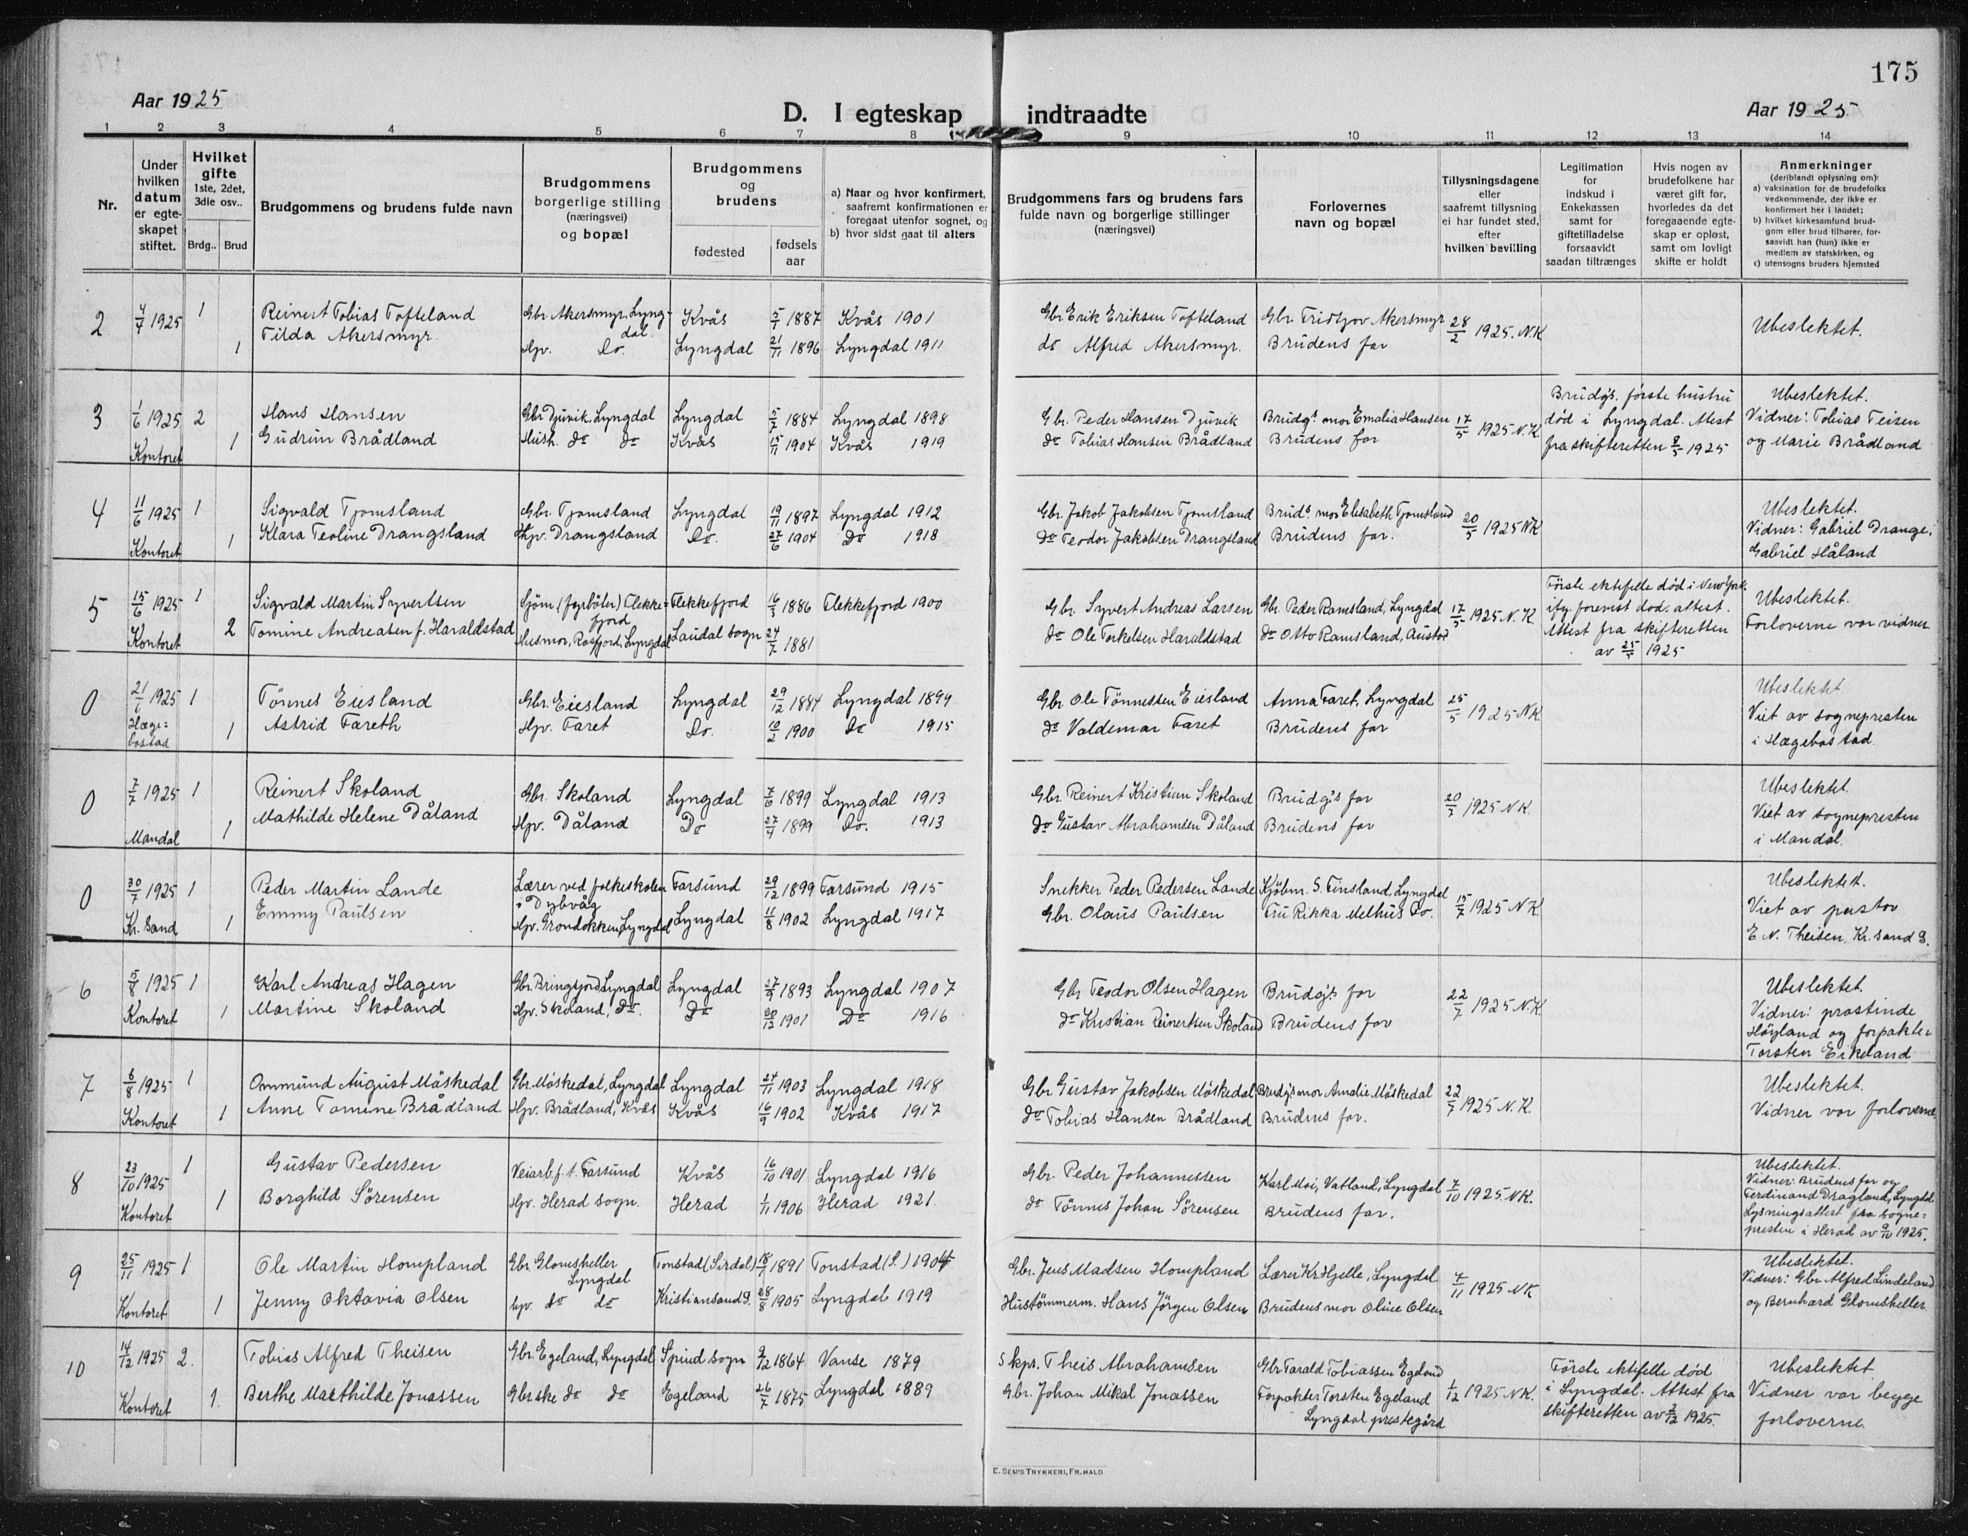 175
Aar 1925
D. I egteskap indtraadte
Aar 1925
1 2 3 4 5 6 7 8 9 10 11 12 13 14
Nr.
Under hvilken datum er egte-skapet stiftet.
Hvilket gifte 1ste, 2det, 3die osv..
Brdg.. Brud
Brudgommens og brudens fulde navn
Brudgommens borgerlige stilling (næringsvei) og bopæl
Brudgommens og brudens
fødested
fødsels aar
a) Naar og hvor konfirmert, saafremt konfirmationen er foregaat utenfor sognet, og
b) hvor sidst gaat til alters
Brudgommens fars og brudens fars fulde navn og borgerlige stillinger (næringsvei)
Forlovernes navn og bopæl
Tillysningsdagene eller saafremt tillysning ei har fundet sted, efter hvilken bevilling
Legitimation for indskud i Enkekassen samt for giftetilladelse forsaavidt saadan tiltrænges
Hvis nogen av brudefolkene har været gift før, hvorledes da det foregaaende egte-skap er opløst, samt om lovligt skifte er holdt
Anmerkninger (deriblandt oplysning om):
a) vaksination for de brudefolks vedkommende, der ikke er konfirmert her i landet;
b) hvilket kirkesamfund brud-gom eller brud tilhører, for-saavidt han (hun) ikke er medlem av statskirken, og
c) utensogns bruders hjemsted
2 4/7 1925 1 Reinert Tobias Tofteland Gbr. Akersmyr, Lyng-dal. Kvås 5/1 1887 Kvås 1901 Gbr Erik Eriksen Tofteland Gbr. Fridtjov Akersmyr 28/2 1925. N.K Ubeslektet.
1 Tilda Akersmyr. Hpv. Do. Lyngdal 21/11 1896 Lyngdal 1911 do Alfred Akersmyr. Brudens far
3 1/6 1925 2 Hans Hansen Gbr Djuvik, Lyngdal Lyngdal 5/7 1884 Lyngdal 1898 Gbr. Peder Hansen Djuvik Brudgs. mor Emalia Hansen 17/5 1925 N.K Brudgs. første hustru død i Lyngdal. Attest fra skifteretten 8/5 1925 Ubeslektet.
Kontoret 1 Gudrun Brådland Hush. do do Kvås 15/11 1904 Kvås 1919 do Tobias Hansen Brådland Brudens far Vidner: Tobias Teisen og Marie Brådland
4 11/6 1925 1 Sigvald Tjomsland Gbr. Tjomsland Lyngdal 19/11 1897 Lyngdal 1912 Gbr. Jakob Jakobsen Tjomsland Brudgs mor Elisabeth Tjomsland 20/5 1925 NK Ubeslektet.
Kontoret 1 Klara Teoline Drangsland Hpv. Drangsland Do. 27/6 1904 Do 1918 do Teodor Jakobsen Drangsland Brudens far. Vidner: Gabriel Drange, Gabriel Håland
5 15/6 1925 1 Sigvald Martin Syvertsen Sjøm. (fyrbøter) Flekke-fjord Flekkefjord 16/3 1886 Flekkefjord 1900 Gbr. Syvert Andreas Larsen Gbr. Peder Ramsland, Lyngdal 17/5 1925 N.K. Første ektefelle død i New York ifg. forevist døds attest. Attest fra skifteretten av 25/5 1925 Ubeslektet.
Kontoret 2 Tomine Andreasen f. Haraldstad Husmor, Rosfjord, Lyngdal Laudal sogn 24/7 1881 do Ole Torkelsen Haraldstad do Otto Ramsland, Austad Forloverne var vidner
0 21/6 1925 1 Tønnes Eiesland Gbr. Eiesland Lyngdal 29/12 1884 Lyngdal 1899 Gbr. Ole Tønnessen Eiesland Anna Faret, Lyngdal 25/5 1925 NK Ubeslektet.
Hæge-bostad 1 Astrid Fareth Hpv. Faret Do. 10/2 1900 Do 1915 do Valdemar Faret Brudens far Viet av sognepresten i Hægebostad.
0 7/7 1925 1 Reinert Skoland Gbr. Skoland Lyngdal 7/6 1899 Lyngdal 1913 Gbr Reinert Kristian Skoland Brudgs far 20/7 1925 NK. Ubeslektet.
Mandal 1 Mathilde Helene Dåland Hpv. Dåland Do 27/9 1899 Do. 1913 do Gustav Abrahamsen Dåland Brudens far Viet av sognepresten i Mandal.
0 30/7 1925 1 Peder Martin Lande Lærer ved folkeskolen i Dybvåg Farsund 29/12 1899 Farsund 1915 Snekker Peder Pedersen Lande Kjøbm. S. Finsland, Lyngdal 15/7 1925 N.K. Ubeslektet.
Kr. sand 1 Emmy Paulsen Hpv. Grondokken, Lyngdal Lyngdal 11/8 1902 Lyngdal 1917 Gbr. Olaus Paulsen Fru Rikka Melhus Do. Viet av pastor E. N. Theisen, Kr. sand S.
6 5/8 1925 1 Karl Andreas Hagen Gbr. Bringsjord, Lyngdal Lyngdal 27/9 1893 Lyngdal 1907 Gbr Teodor Olsen Hagen Brudgs. far 22/7 1925 N.K Ubeslektet.
Kontoret 1 Martine Skoland Hpv. Skoland, do. Do 30/12 1901 Do 1916 do Kristian Reinertsen Skoland Brudens far Vidner: prostinde Høyland og forpakter Torsten Eikeland
7 6/8 1925 1 Ommund August Møskedal Gbr. Møskedal, Lyngdal Lyngdal 24/11 1903 Lyngdal 1918 Gbr Gustav Jakobsen Møskedal Brudgs mor Amalie Møskedal 22/7 1925 N.K. Ubeslektet.
Kontoret 1 Anne Tomine Brådland Hpv. Brådland, Kvås Kvås 16/9 1902 Kvås 1917 do Tobias Hansen Brådland Brudens far. Vidner var forloverne
8 23/10 1925 1 Gustav Pedersen Veiarb. f. t. Farsund Kvås 16/10 1901 Lyngdal 1916 Gbr. Peder Johannessen Karl Moi, Vatland, Lyngdal 7/10 1925 NK. Ubeslektet.
Kontoret 1 Borghild Sørensen Hpv. Herad sogn. Herad 1/11 1906 Herad 1921. do Tønnes Johan Sørensen Brudens far. Vidner: Brudens far og Ferdinand Dragland, Lyngdal Lysningsattest fra sogne-presten i Herad av 9/10 1925.
9 25/11 1925 1 Ole Martin Hompland Gbr. Glomsheller Lyngdal Tonstad (Sirdal) 18/7 1891 Tonstad (S.) 1904 Gbr. Jens Madsen Hompland Lærer Kr. Hjelle, Lyngdal 7/11 1925 NK Ubeslektet.
Kontoret 1 Jenny Oktavia Olsen hpv. do do Kristiansand S. 28/8 1905 Lyngdal 1919 Hustømmerm. Hans Jørgen Olsen Brudens mor Oline Olsen Vidner: Gbr. Alfred Lindeland og Bernhard Glomsheller.
10 14/12 1925 2. Tobias Alfred Theisen Gbr. Egeland, Lyngdal Spind sogn 9/12 1864 Vanse 1879 Skps. Theis Abrahamsen Gbr Tarald Tobiassen Egeland 1/12 1925 NK. Første ektefelle død i Lyngdal. Attest fra skifteretten av 2/12 1925. Ubeslektet.
Kontoret 1. Berthe Marthilde Jonassen Gbrske do do Egeland 26/7 1875 Lyngdal 1889 Gbr. Johan Mikal Jonassen Forpakter Torsten Egeland Lyngdal prestegård Vidner var begge forloverne.
E. SEM'S TRYKKERI, FR.HALD